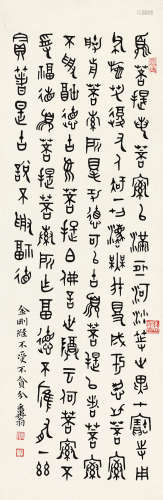 須菩提若菩薩以滿恆河沙等世界七寶持用
布施若復有人知一切法無我得成於忍此菩薩勝
前菩薩所得功德何以故須菩提以諸菩薩
不受福德故須菩提白佛言世尊云何菩薩不
受福德須菩提菩薩所作福德不應
貪著是故說不受福德
金剛經不受不貪分